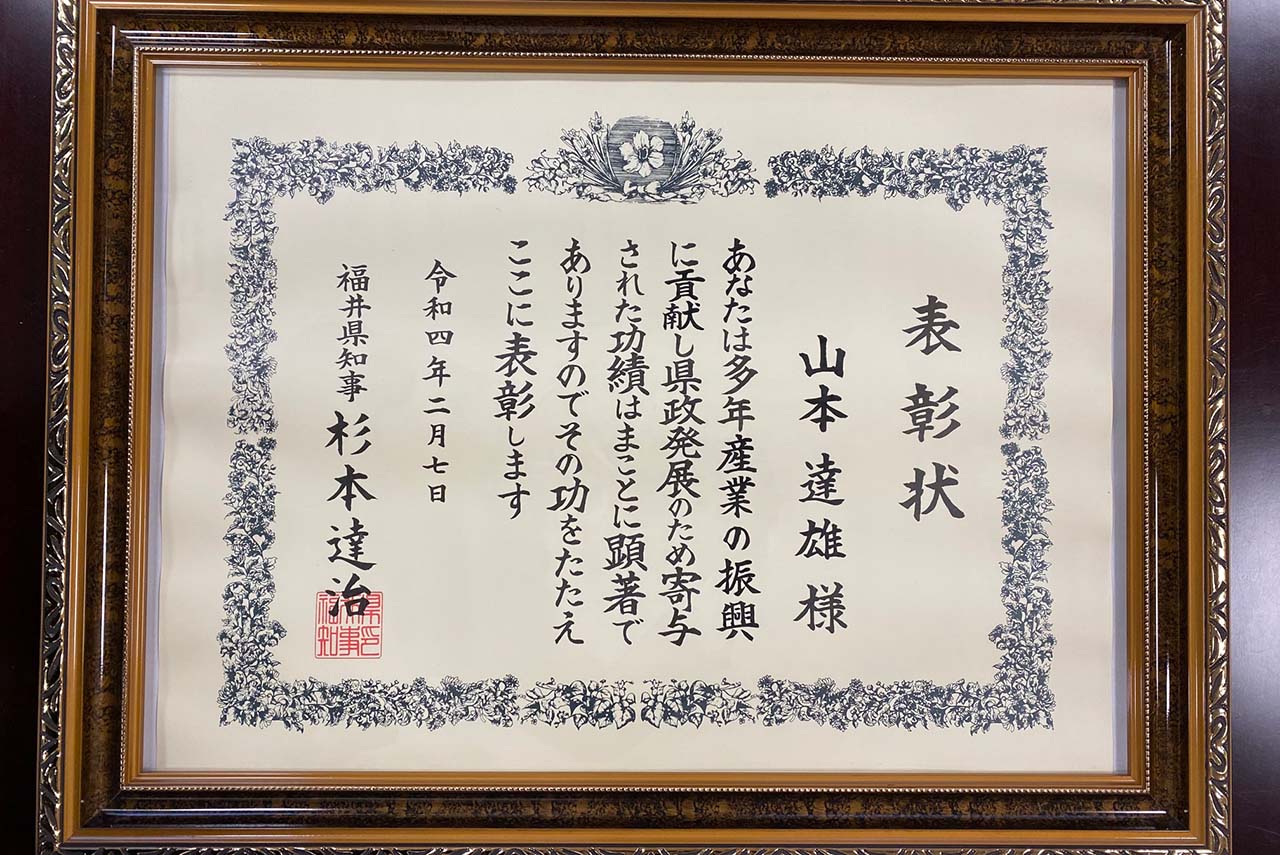 表彰状
山本達雄様
あなたは多年産業の振興
に貢献し県政発展のため寄与
された功績はまことに顕著で
ありますのでその功をたたえ
ここに表彰します
令和四年二月七日
福井県知事 杉本達治